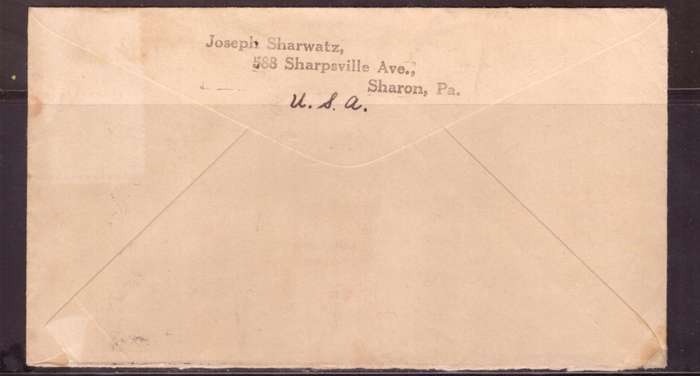 Joseph Sharwatz,
588 Sharpsville Ave.,
Sharon, Pa.
U. S. A.